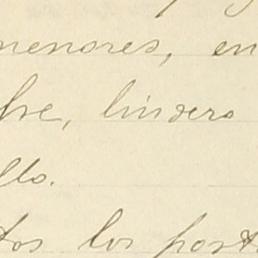 menores, en
bre, lindero
llo.
tos los post